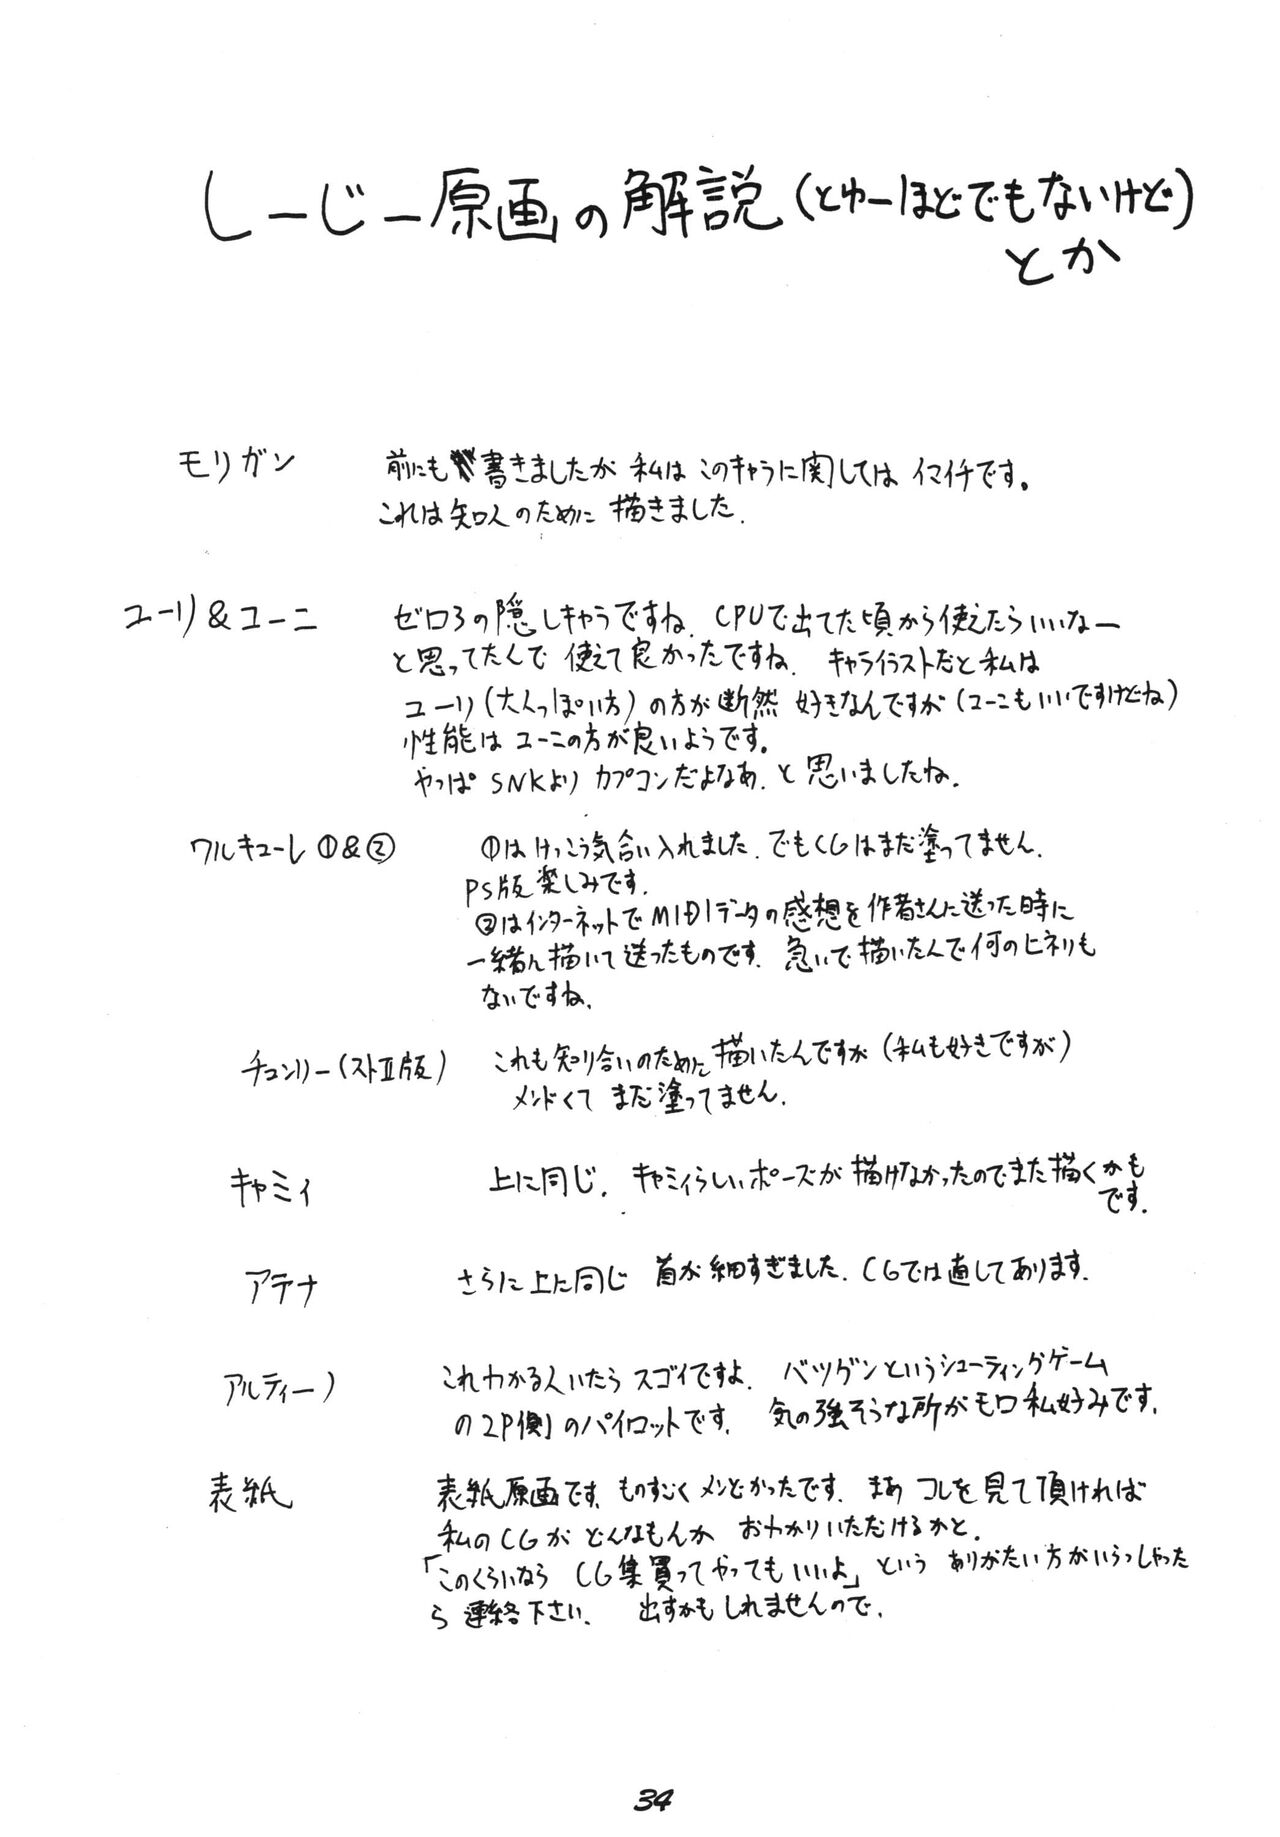 しーじー原画の解説(とゆーほどでもないけど)
とか
モリガン
前にも書きましたが 私は このキャラに関しては イマイチです。
これは知人のために 描きました.
ユーリ&ユーニ
ゼロ3の隠しキャラですね. CPUで出てた頃から使えたらいいなー
と思ってたんで 使えて良かったですね. キャライラストだと私は
ユーリ(大人っぽい方)の方が断然 好きなんですが(ユーニもいいですけどね)
性能は ユーニの方が良いようです。
やっぱ SNKより カプコンだよなあ. と 思いましたね.
ワルキューレ ①&②
①は けっこう気合い入れました. でもCGはまだ塗ってません.
PS版 楽しみです.
②はインターネットでMIDIデータの感想を作者さんに送った時に
一緒に描いて送ったものです. 急いで描いたんで何のヒネリも
ないですね.
チュンリー(ストII版)
これも知り合いのために描いたんですが(私も好きですが)
メンドくて まだ塗ってません.
キャミィ
上に同じ. キャミィらしいポーズが 描けなかったのでまた描くかも
です.
アテナ
さらに上に同じ 首が細すぎました. CGでは直してあります.
アルティーノ
これわかる人いたら スゴイですよ. バツグンというシューティングゲーム
の2P側のパイロットです. 気の強そうな所がモロ私好みです.
表紙
表紙原画です. ものすごく メンどかったです. まあ コレを見て頂ければ
私のCGが どんなもんか おわかりいただけるかと.
「このくらいなら CG集買ってやってもいいよ」という ありがたい方がいらっしゃった
ら 連絡下さい. 出すかもしれませんので.
34